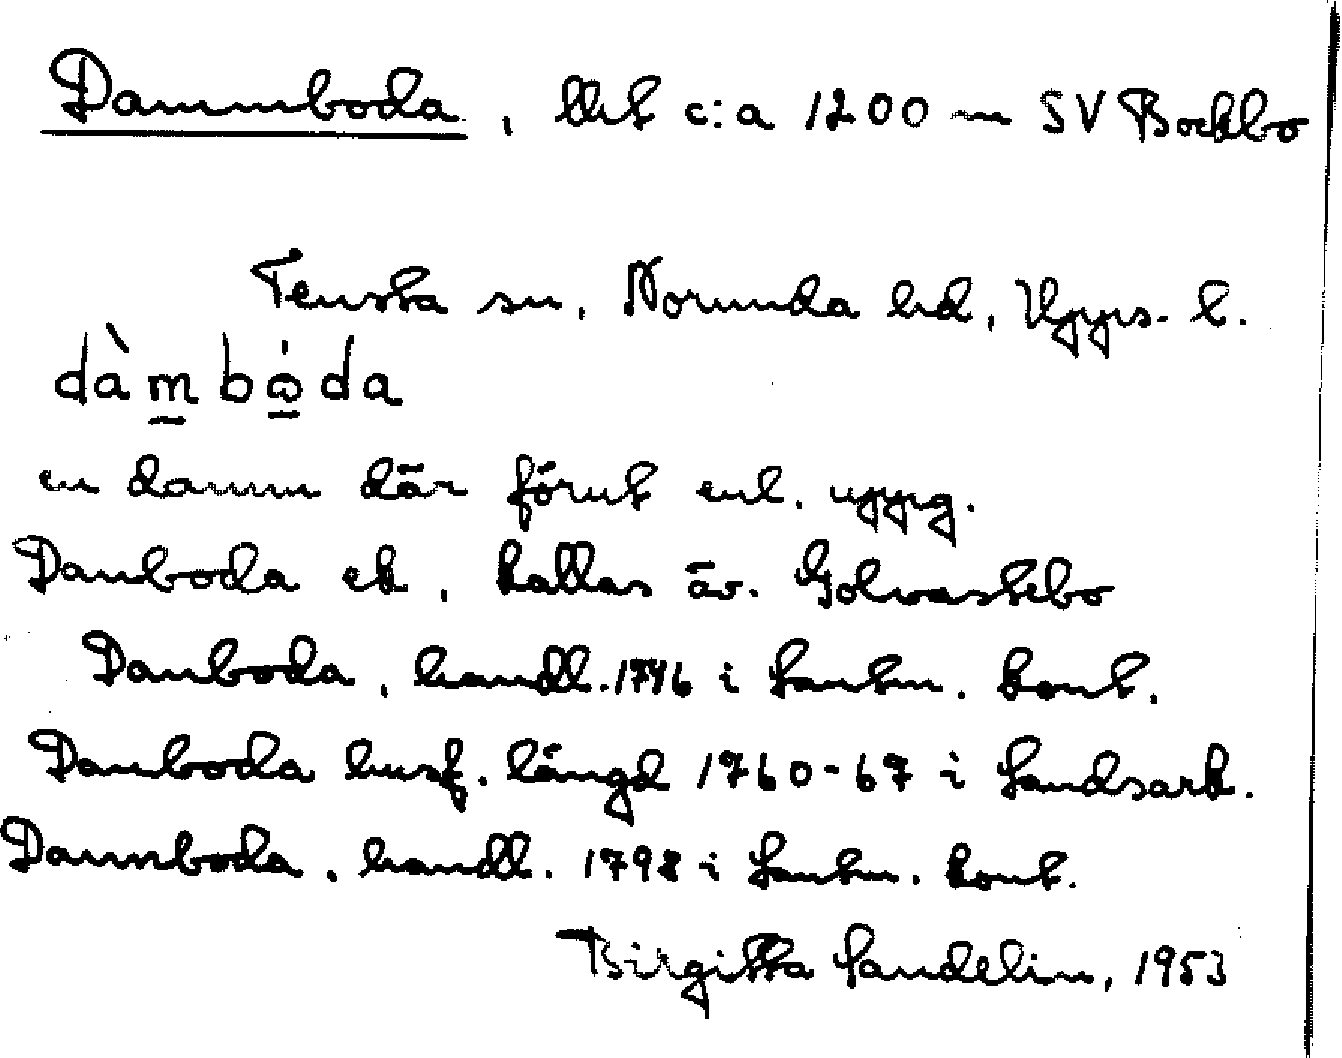 Dammboda, lht c:a 1200 m SV Bocklbo
Tensta sn, Norunda hd, Upps. l.
dàmbȯda
en damm där förut enl. uppg.
Damboda ek, kallas äv. Golvastebo
Damboda, handl. 1746 i Lantm. kont.
Damboda husf. längd 1760-67 i Landsark.
Dammboda, handl. 1798 i Lantm. kont.
Birgitta Sandelin, 1953